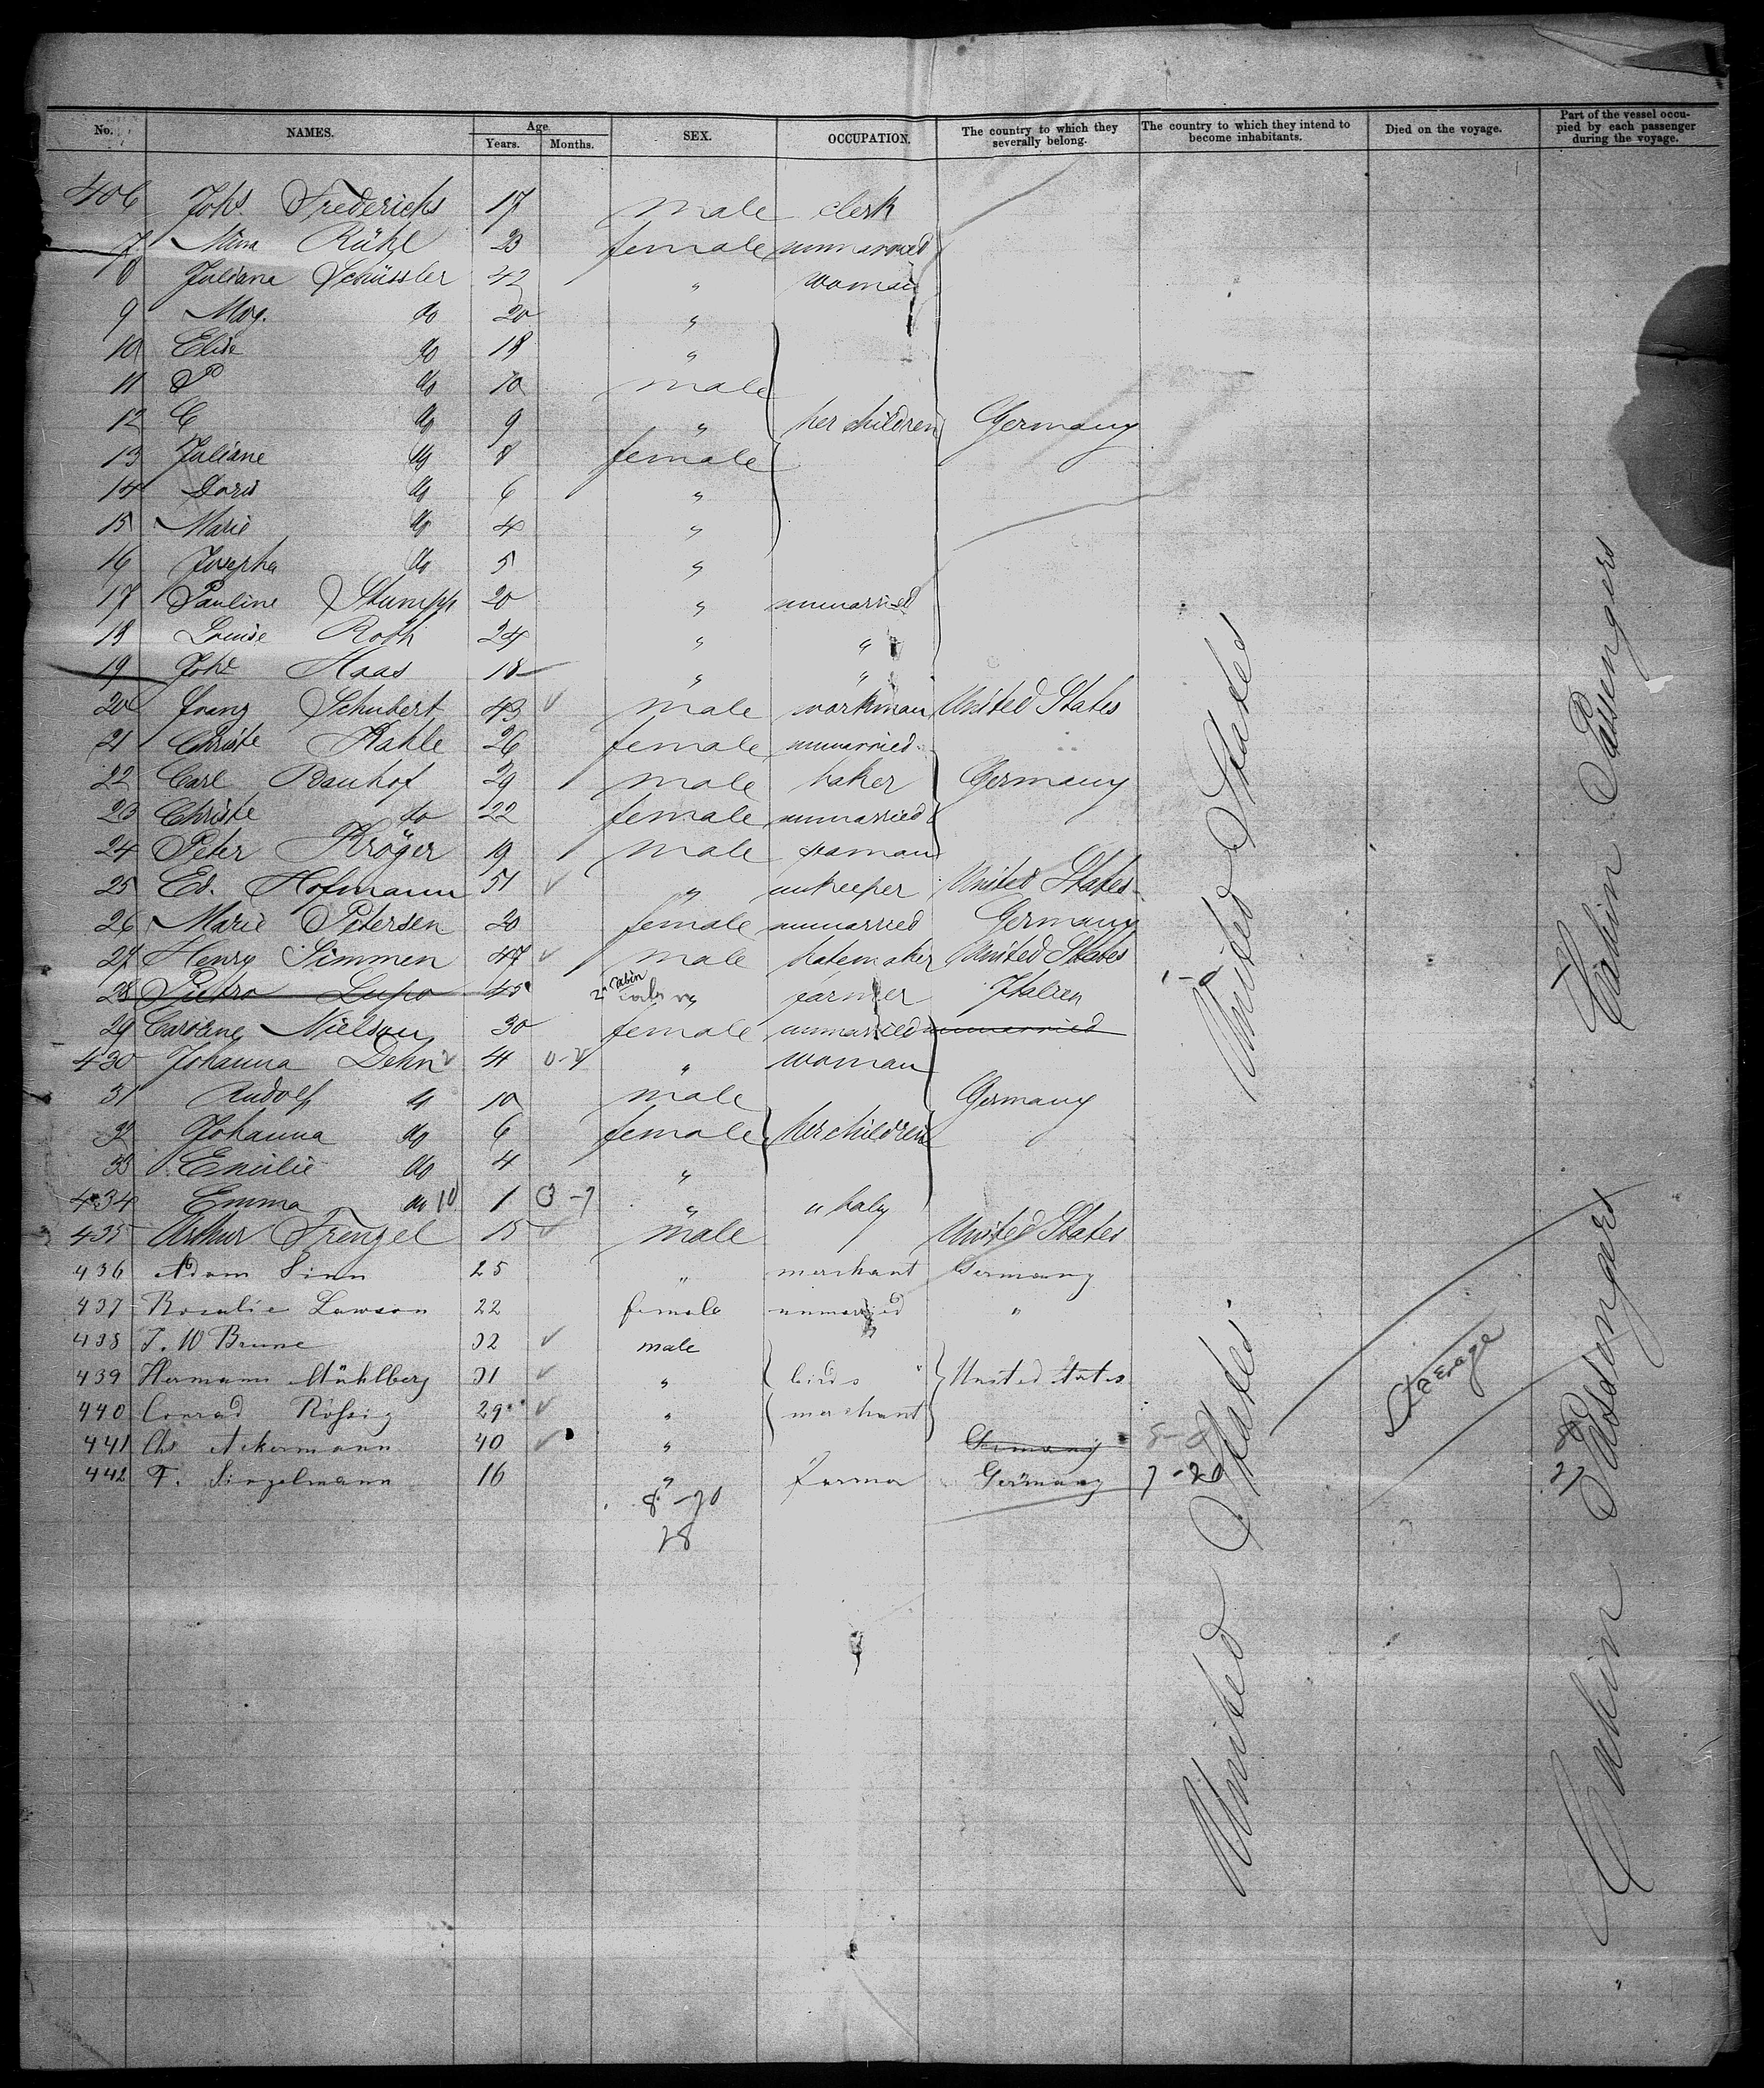 No. NAMES. Age Years. Months. SEX. OCCUPATION. The country to which they severally belong. The country to which they intend to become inhabitants. Died on the voyage. Part of the vessel occupied by each passenger during the voyage.
406 Johs. Frederichs 17 male clerk
7 Mina Rühl 23 female unmarried
8 Juliane Schüssler 42 " woman
9 Mag. do 20 "
10 Elise do 18 "
11 P do 10 male
12 C do 9 " her children Germany
13 Juliane do 8 female
14 Doris do 6 "
15 Marie do 4 "
16 Josepha do 5 "
17 Pauline Stumpp 20 " unmarried
18 Louise Roth 24 " "
19 Johs Haas 18 " "
20 Franz Schubert 43 ✓ male workman United States
21 Christe Kahle 26 female unmarried
22 Carl Bauhof 29 male baker Germany
23 Christe do 22 female unmarried
24 Peter Kröger 19 male seaman
25 Ed. Hofmann 51 ✓ " innkeeper United States
26 Marie Petersen 20 female unmarried Germany
27 Henry Simmen 47 ✓ male United States
28 Pietro Lupo 45 2n Cabin " farmer Italien
29 Caroline Nielson 30 female unmarried unmarried
430 Johanna Dehn 41 " woman
31 Rudolf do 10 male Germany
32 Johanna do 6 female her children
33 Emilie do 4 "
434 Emma do 10 1 " " baby
435 Arthur Frenzel 15 ✓ male United States
436 Adam Sinn 25 " merchant Germany
437 Rosalie Lawson 22 female unmarried "
438 J. W Brune 32 ✓ male
439 Hermann Mühlberg 31 ✓ " birds United States
440 Conrad Rössig 29 ✓ " merchant
441 Chs Ackermann 40 ✓ " Germany 8-8
442 F. Singelmann 16 " farmer Germany 7-20 27
8-20
28
United States
United States
Steerage
Cabin Passengers
Cabin Passengers